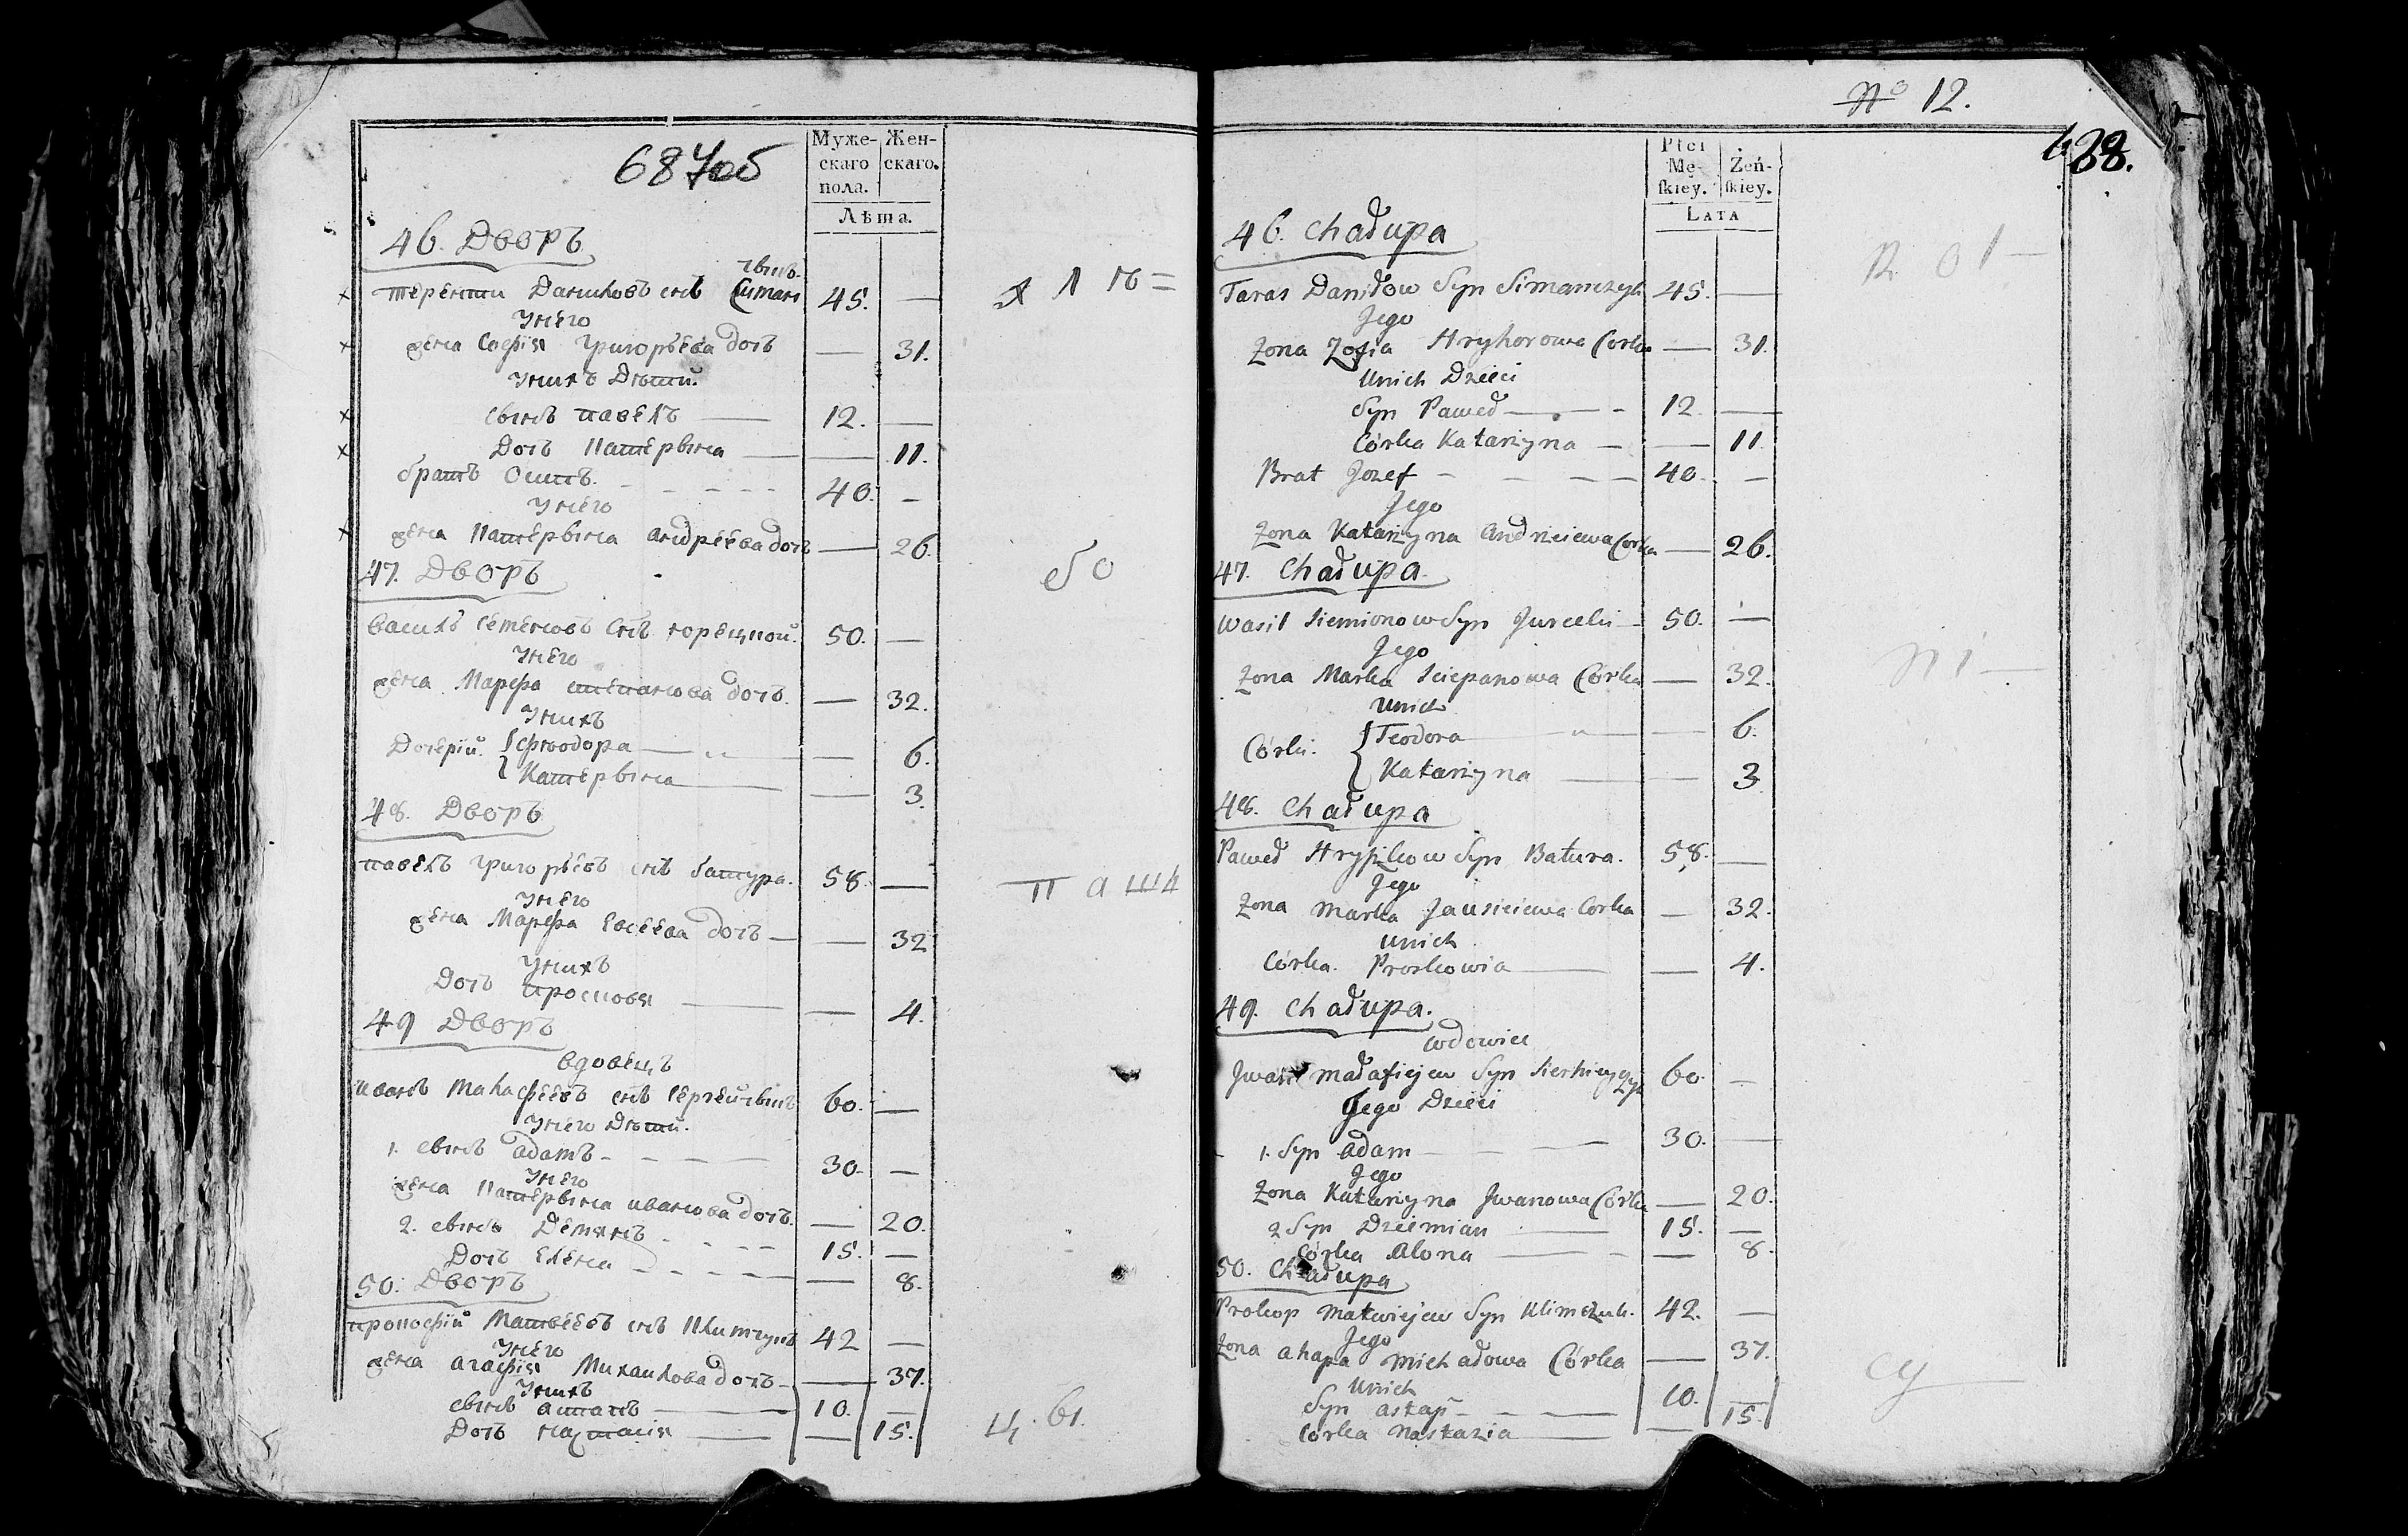 687об
Муже-
скаго
пола.
Жен-
скаго.
Лѣта.
46. Дворъ
чвик.
Терентий Даниловъ снъ Симан 45. —
У него
жена Софія Григорьева дочь — 31.
У нихъ Дети.
Сынъ Павелъ — 12. —
Дочь Катерына — — 11.
братъ Осипъ. 40. —
У него
жена Катерына андреева дочь — 26.
47. Дворъ
Василь Семеновъ Снъ 50. —
У него
жена Марфа степанова дочь. — 32.
У нихъ
Дочерій. { Фѣодора — " — — 6.
{ Катерына — — 3.
48. Дворъ
Павелъ Григорьевъ снъ батура. 58. —
У него
жена Марфа Евсеева дочь — — 32
У нихъ
Дочь Просковя — — 4.
49 Дворъ
вдовецъ
иванъ Малафеевъ снъ Сергейчыкъ 60. —
У него Дети.
1. сынъ адамъ 30. —
У него
жена Катерына иванова дочь. — 20.
2. сынъ Демянъ 15. —
Дочь Елена — 8.
50. Дворъ
Прокофій Матвеевъ снъ Климчукъ 42 —
У него
жена агафія Михайлова дочь — — 37.
У нихъ
сынъ астапъ — 10. —
Дочь настасія — — 15.
бо
No 12.
688.
Płci
Mę-
ſkiey.
Żeń-
ſkiey.
LATA
46. Chałupa
Taras Daniłow Syn Simanczyk 45. —
Jego
Żona Zofia Hryhorowa Corka — 31.
Unich Dzieci
Syn Paweł — 12. —
Córka Katarzyna — — 11.
Brat Jozef — 40. —
Jego
Żona Katarzyna Andrzeiewa Corka — 26.
47. Chałupa.
Wasil Siemionow Syn Jurcelu 50. —
Jego
Żona Marka Sciepanowa Córka — 32.
Unich
Córki. { Teodora — " — 6.
{ Katarzyna — — 3
48. Chałupa
Paweł Hryszkow Syn Batura. 58. —
Jego
Żona Marka Jausieiewa Corka — 32.
Unich
Córka. Proskowia — — 4.
49. Chałupa.
wdowiec
Jwan Małafiejew Syn Sierhiejczyk 60. —
Jego Dzieci
1. Syn adam 30. —
Jego
Żona Katarzyna Jwanowa Córka — 20.
2 Syn Dziemian — 15. —
Córka Alona — — 8.
50. Chałupa
Prokop Matwiejew Syn Klimczuk. 42. —
Jego
Żona ahapa Michałowa Córka — 37.
Unich
Syn astap — 10. —
Córka Nastazia — — 15.